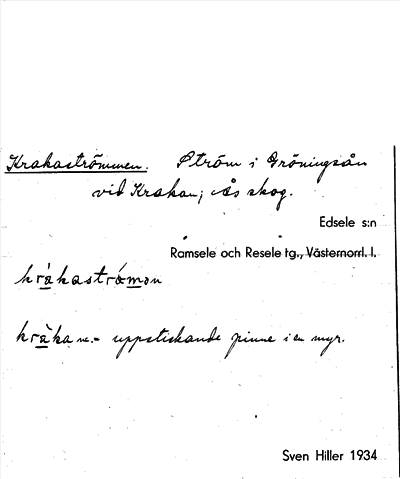 Krakaströmmen. Ström i Gröningsån
vid Krakan; Ås skog.
Edsele s:n
Ramsele och Resele tg., Västernorrl. l.
kràkastrómon
kràka n.- uppstickande pinne i en myr.
Sven Hiller 1934